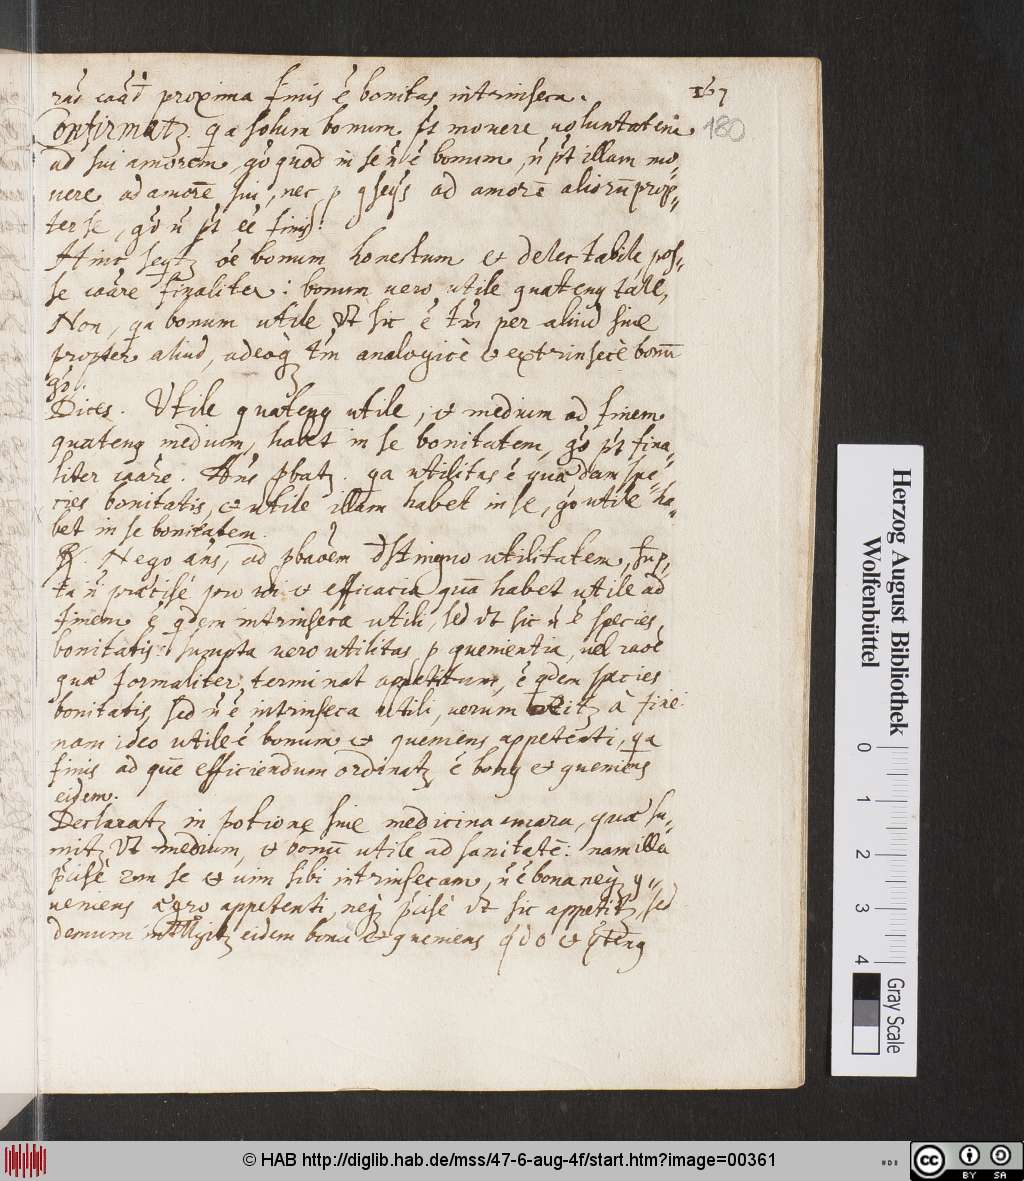 167
180
proxima finis é bonitas intrinseca.
Confirmatz qa solum bonum pt mouere uoluntatem
ad sui amorem, gó quod in se ń é bonum, ń pt illam mo=
uere ad amorē sui, nec p qseqs ad amorē aliorū prop=
ter se, gó ń pt eé finis.
Hinc seqtz oé bonum honestum et delectabile pos=
se caāre finaliter: bonum uero utile quateng tale,
Non, qa bonum utile Vt sic é tm per aliud siue
propter aliud, adeoqz tm analogicè et extrinsecè bonū
gó.
Dices. Utile quateng utile, et medium ad finem
quateng medium, habet in se bonitatem, gó pt fina=
liter caāre. Ans pbatz. qa utilitas é quædam spe=
cies bonitatis, et utile illam habet in se, gó utile ha=
bet in se bonitatem.
R. Nego ans, ad pbaōem dstinguo utilitatem, sup=
ta ń præcisé pro ui et efficacia quā habet utile ad
finem é qdem intrinseca utili, sed Vt sic ń é species
bonitatis: sumpta uero utilitas p quenientia, uel raōe
quæ formaliter terminat appetitum, é qdem species
bonitatis, sed ń é intrinseca utili, uerum à fine
nam ideo utile é bonum et queniens appetenti, qa
finis ad quē efficiendum ordinatz é bong et queniens
eidem.
Declaratz in potione siue medicina amara, quæ su=
mitz Vt medium, et bonū utile ad sanitatē: nam illa
pcisé 2m se et uim sibi intrinsecam, ń é bona neqz q=
ueniens ægro appetenti, neqz pcisé Vt sic appetitz, sed
demum intelligitz eidem bona et queniens qdo et qteng
Herzog August Bibliothek
Wolfenbüttel
0 1 2 3 4
Gray Scale
© HAB http://diglib.hab.de/mss/47-6-aug-4f/start.htm?image=00361
cc BY SA